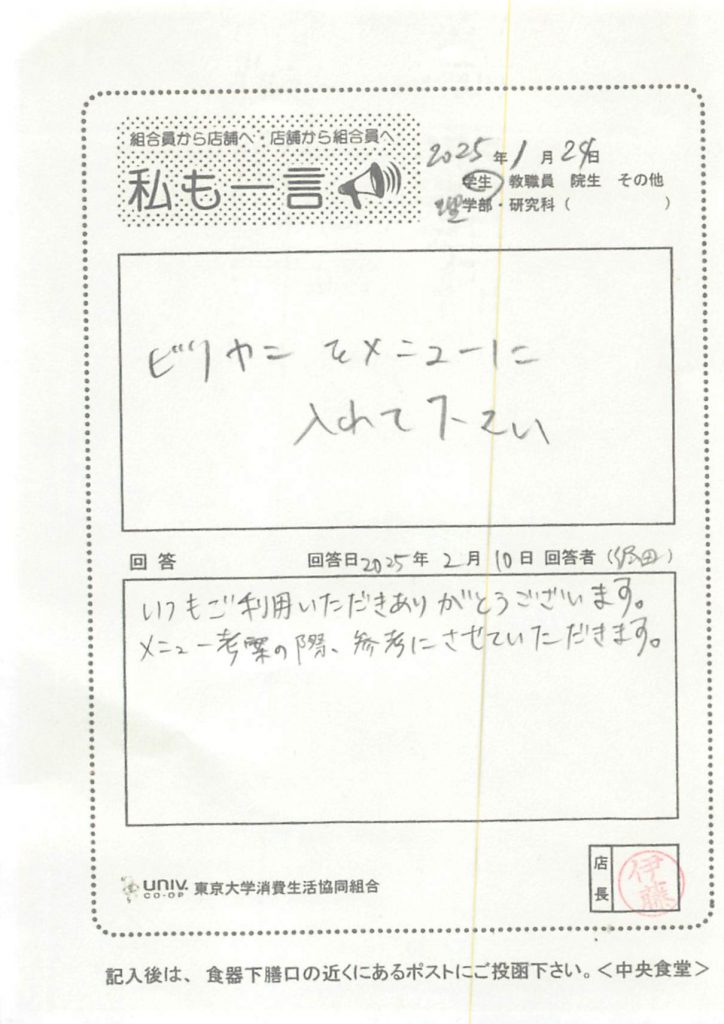 組合員から店舗へ・店舗から組合員へ
私も一言
2025年1月24日
学生 教職員 院生 その他
理学部・研究科（ ）
ビリヤニをメニューに
入れて下さい
回答 回答日2025年2月10日 回答者（ 田）
いつもご利用いただきありがとうございます。
メニュー考案の際、参考にさせていただきます。
UNIV. CO-OP 東京大学消費生活協同組合
店長 伊藤
記入後は、食器下膳口の近くにあるポストにご投函下さい。＜中央食堂＞